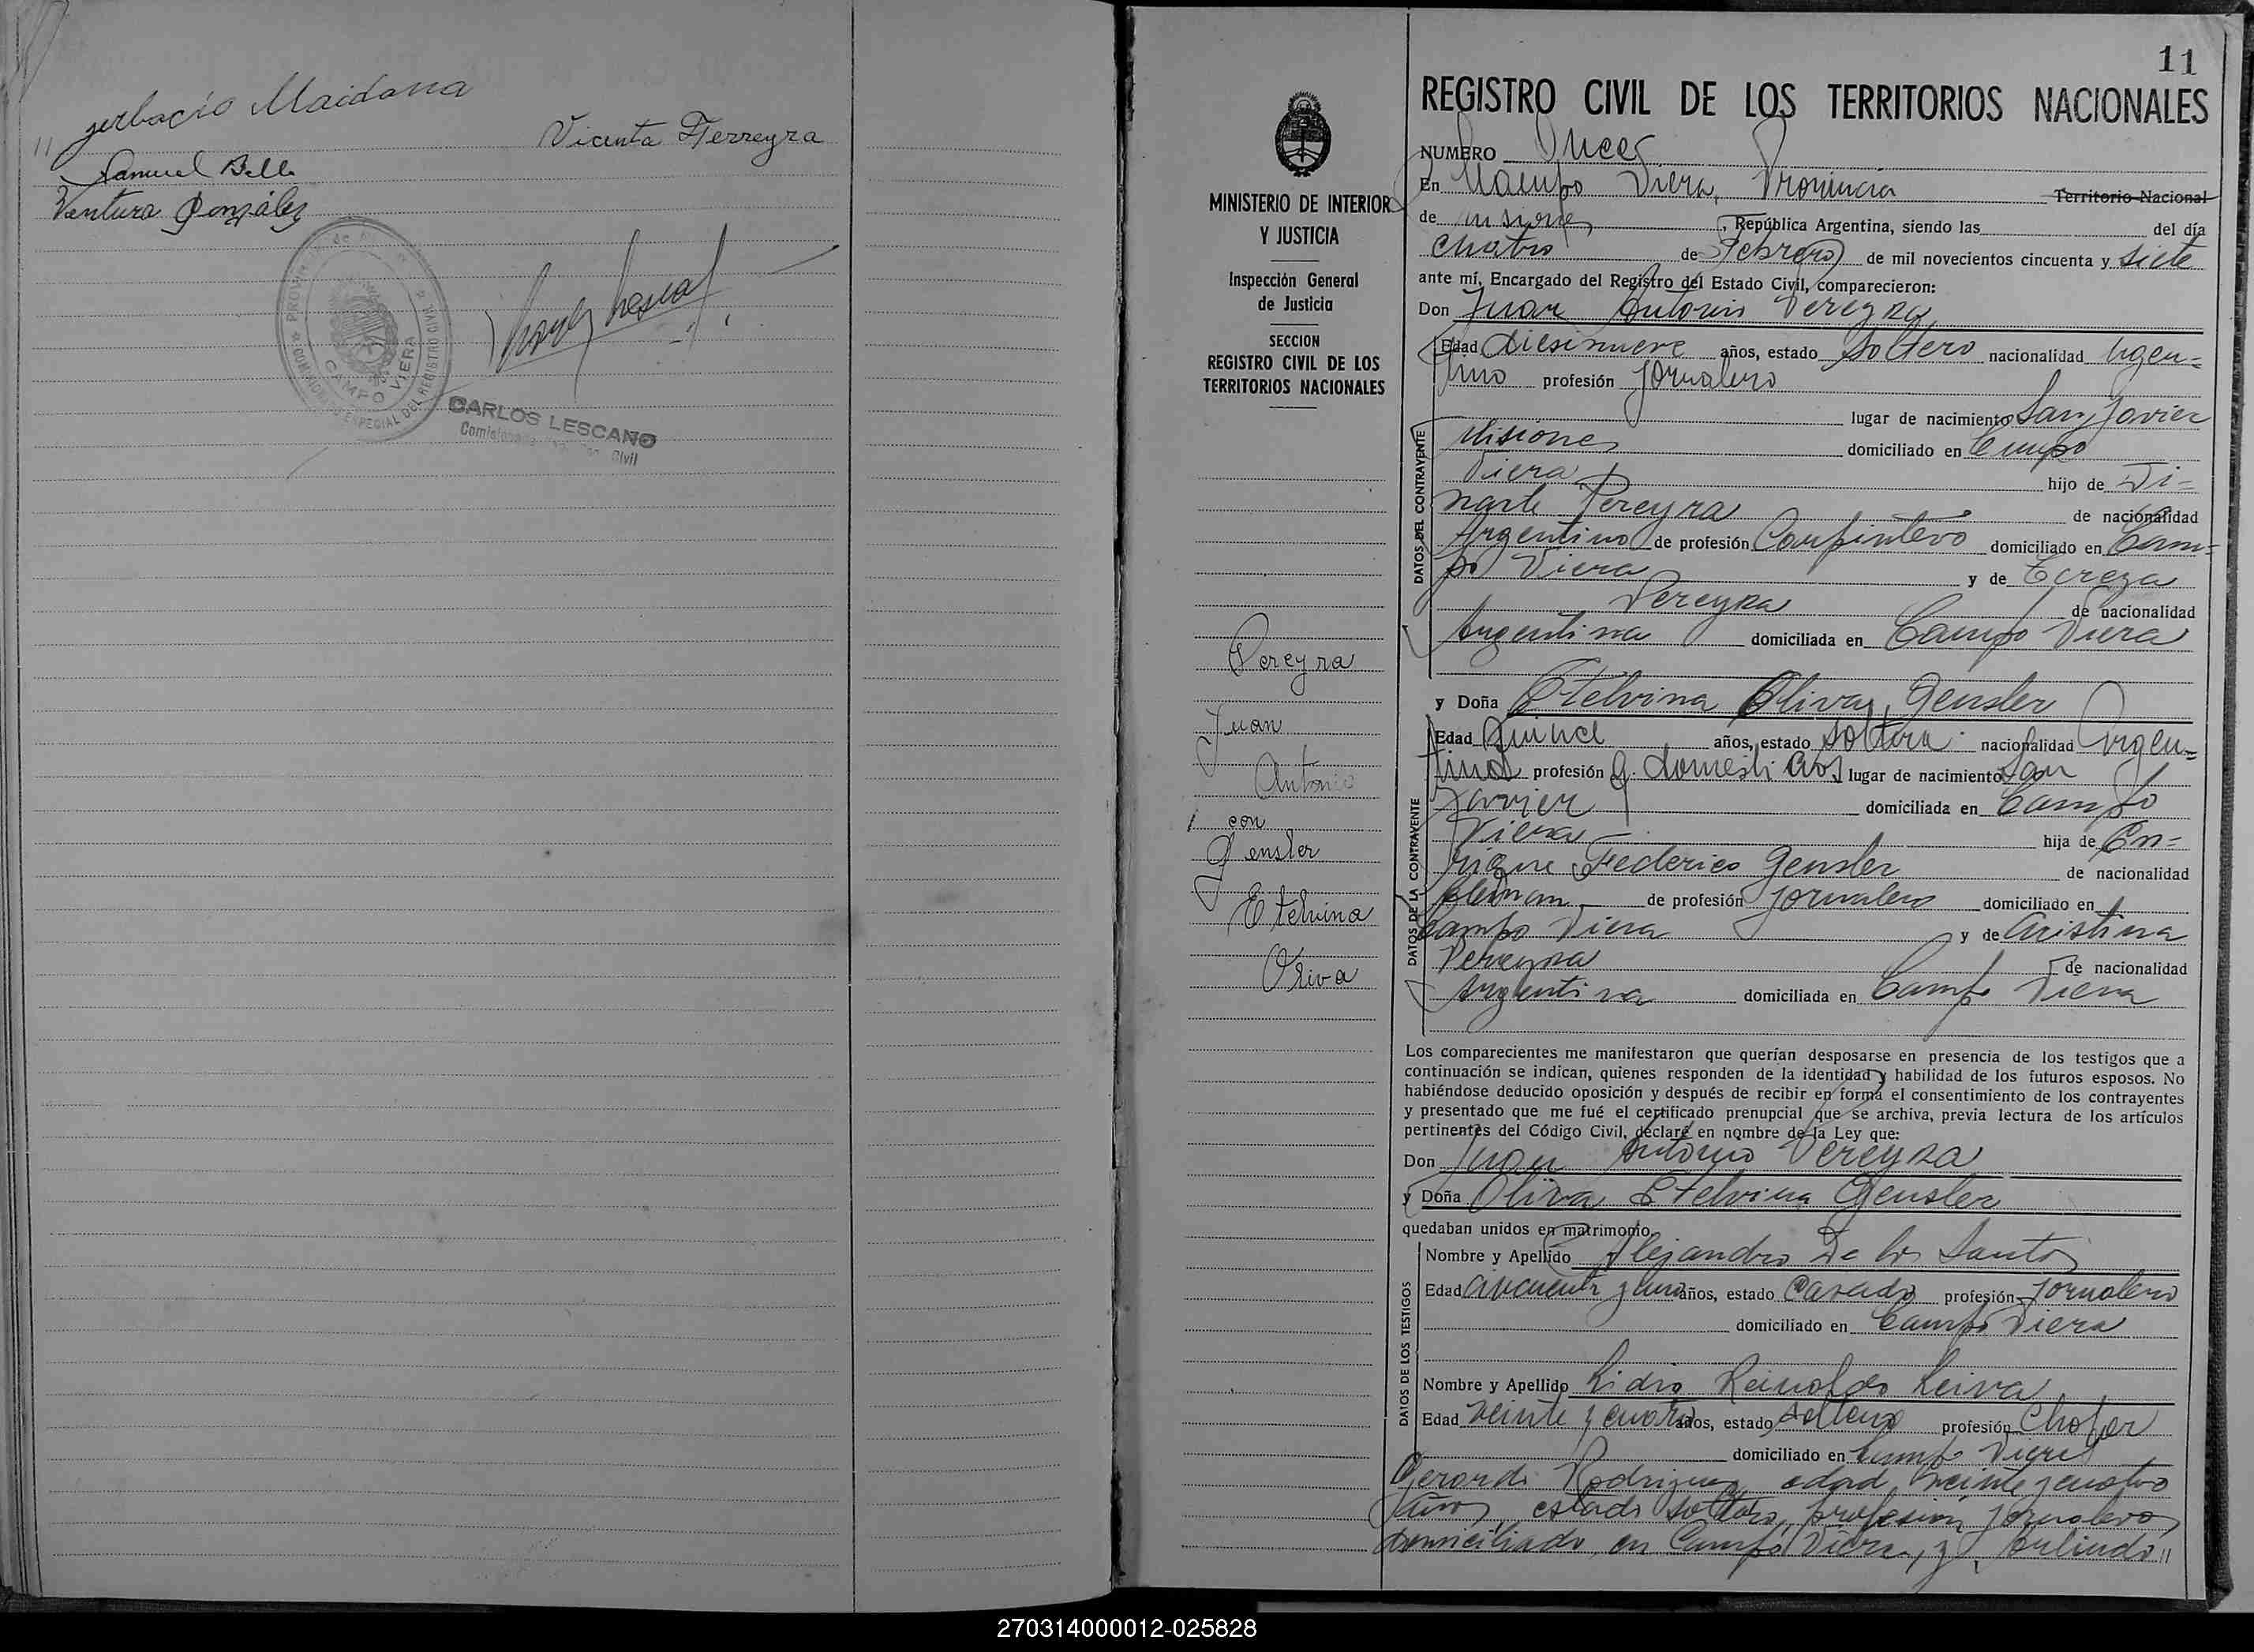 Maidana
Vicenta Ferreyra
Samuel Bello
Ventura González
CAMPO VIERA
CARLOS LESCANO
Civil
11
REGISTRO CIVIL DE LOS TERRITORIOS NACIONALES
MINISTERIO DE INTERIOR
Y JUSTICIA
Inspección General
de Justicia
SECCION
REGISTRO CIVIL DE LOS
TERRITORIOS NACIONALES
Pereyra
Juan
Antonio
con
Gensler
Etelvina
Oliva
NUMERO Once
En Campo Viera, Provincia Territorio Nacional
de Misiones, República Argentina, siendo las del día
cuatro de Febrero de mil novecientos cincuenta y siete
ante mí, Encargado del Registro del Estado Civil, comparecieron:
Don Juan Antonio Pereyra
Edad Diesinueve años, estado Soltero nacionalidad Argen=
tino profesión Jornalero
lugar de nacimiento San Javier
Misiones domiciliado en Campo
Viera hijo de Di=
narte Pereyra de nacionalidad
Argentino de profesión Carpintero domiciliado en Cam=
po Viera y de Tereza
Pereyra de nacionalidad
Argentina domiciliada en Campo Viera
DATOS DEL CONTRAYENTE
y Doña Etelvina Oliva Gensler
Edad Quince años, estado soltera nacionalidad Argen=
tina profesión q. domesticos lugar de nacimiento San
Javier domiciliada en Campo
Viera hija de En=
rique Federico Gensler de nacionalidad
Aleman de profesión Jornalero domiciliado en
Campo Viera y de Cristina
Pereyra de nacionalidad
Argentina domiciliada en Campo Viera
DATOS DE LA CONTRAYENTE
Los comparecientes me manifestaron que querían desposarse en presencia de los testigos que a
continuación se indican, quienes responden de la identidad y habilidad de los futuros esposos. No
habiéndose deducido oposición y después de recibir en forma el consentimiento de los contrayentes
y presentado que me fué el certificado prenupcial que se archiva, previa lectura de los artículos
pertinentes del Código Civil, declaré en nombre de la Ley que:
Don Juan Antonio Pereyra
y Doña Oliva Etelvina Gensler
quedaban unidos en matrimonio.
Nombre y Apellido Alejandro De los Santos
Edad cincuenta y uno años, estado Casado profesión Jornalero
domiciliado en Campo Viera
Nombre y Apellido Lidio Reinoldo Leiva
Edad veinte y cuatro años, estado soltero profesión Chofer
domiciliado en Campo Viera
DATOS DE LOS TESTIGOS
Gerardo Rodriguez, edad veinte y cuatro
años, estado soltero, profesion, Jornalero,
domiciliado en Campo Viera, y, Arlindo //
270314000012-025828